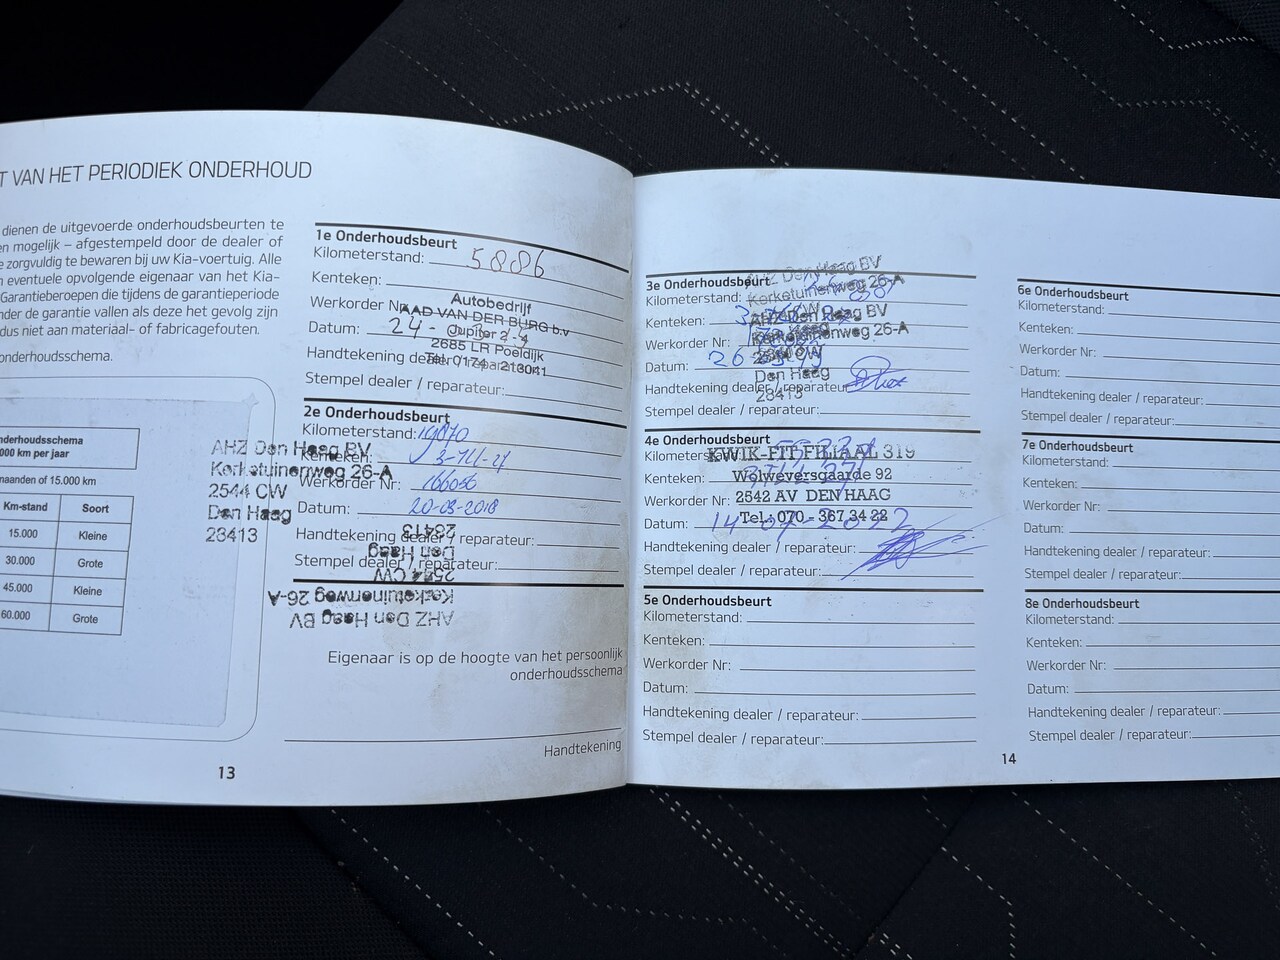 T VAN HET PERIODIEK ONDERHOUD
dienen de uitgevoerde onderhoudsbeurten te
en mogelijk – afgestempeld door de dealer of
e zorgvuldig te bewaren bij uw Kia-voertuig. Alle
n eventuele opvolgende eigenaar van het Kia-
Garantieberoepen die tijdens de garantieperiode
nder de garantie vallen als deze het gevolg zijn
dus niet aan materiaal- of fabricagefouten.
onderhoudsschema.
nderhoudsschema
000 km per jaar
maanden of 15.000 km
Km-stand Soort
15.000 Kleine
30.000 Grote
45.000 Kleine
60.000 Grote
1e Onderhoudsbeurt
Kilometerstand: 5886
Kenteken:
Werkorder Nr:
Datum: 24-
Handtekening dealer / reparateur:
Stempel dealer / reparateur:
Autobedrijf
AAD VAN DER BURG b.v
Jupiter 2-4
2685 LR Poeldijk
Tel. 0174 - 213041
2e Onderhoudsbeurt
Kilometerstand: 19870
Kenteken:
Werkorder Nr: 166056
Datum: 20-03-2018
Handtekening dealer / reparateur:
Stempel dealer / reparateur:
AHZ Den Haag BV
Kerketuinenweg 26-A
2544 CW
Den Haag
23413
23413
Den Haag
2544 CW
Kerketuinenweg 26-A
AHZ Den Haag BV
Eigenaar is op de hoogte van het persoonlijk
onderhoudsschema
Handtekening
13
3e Onderhoudsbeurt
Kilometerstand:
Kenteken:
Werkorder Nr:
Datum: 26
Handtekening dealer / reparateur:
Stempel dealer / reparateur:
AHZ Den Haag BV
Kerketuinenweg 26-A
AHZ Den Haag BV
Kerketuinenweg 26-A
2544 CW
Den Haag
23413
4e Onderhoudsbeurt
Kilometerstand:
Kenteken:
Werkorder Nr:
Datum: 14-07-2022
Handtekening dealer / reparateur:
Stempel dealer / reparateur:
KWIK-FIT FILIAAL 319
Wolweversgaarde 92
2542 AV DEN HAAG
Tel.: 070 - 367 34 22
5e Onderhoudsbeurt
Kilometerstand:
Kenteken:
Werkorder Nr:
Datum:
Handtekening dealer / reparateur:
Stempel dealer / reparateur:
6e Onderhoudsbeurt
Kilometerstand:
Kenteken:
Werkorder Nr:
Datum:
Handtekening dealer / reparateur:
Stempel dealer / reparateur:
7e Onderhoudsbeurt
Kilometerstand:
Kenteken:
Werkorder Nr:
Datum:
Handtekening dealer / reparateur:
Stempel dealer / reparateur:
8e Onderhoudsbeurt
Kilometerstand:
Kenteken:
Werkorder Nr:
Datum:
Handtekening dealer / reparateur:
Stempel dealer / reparateur:
14